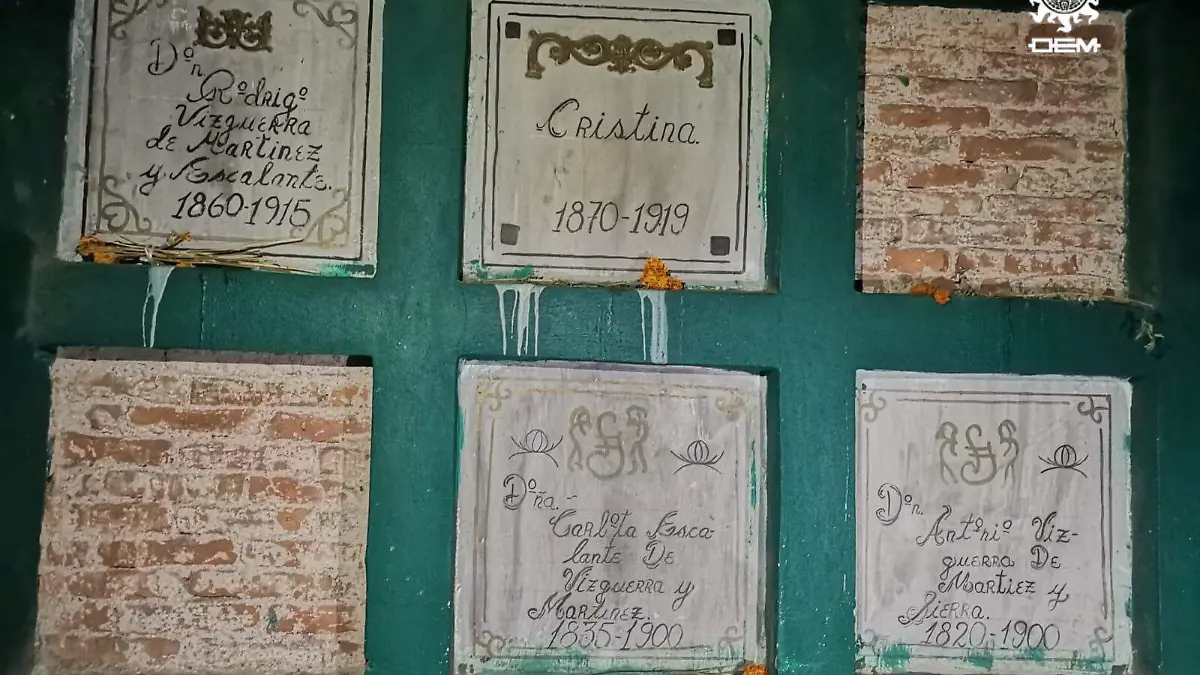 Dºn
Rºdrigº
Vizguerra
de Martinez
y Escalante.
1860-1915
Cristina.
1870-1919
OEM
Dº-ña.-
Carlºta Esca-
lante De
Vizguerra y
Martinez.
1835-1900
Dºn.
Antºniº Viz-
guerra De
Martiez y
Sierra.
1820-1900